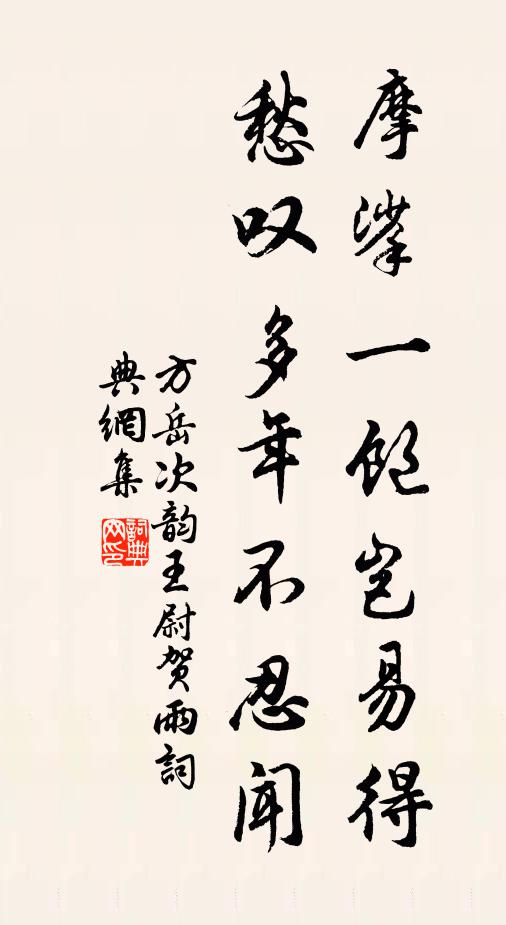 摩挲一饱岂易得
愁叹多年不忍闻
方岳次韵王尉贺雨詞
典網集
詞典网印